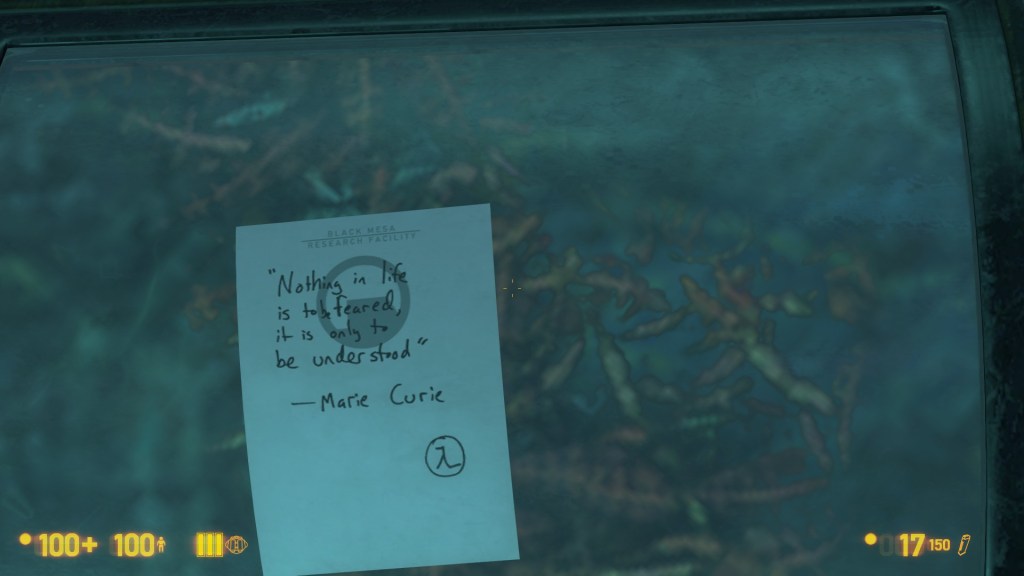 BLACK MESA
RESEARCH FACILITY
"Nothing in life
is to be feared,
it is only to
be understood"
—Marie Curie
λ
100+ 100
17 150